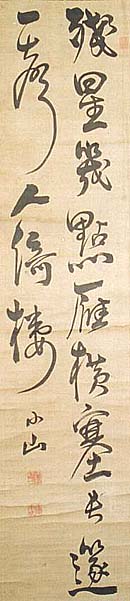 殘星幾點雁横塞長篴
一聲人倚樓
小山